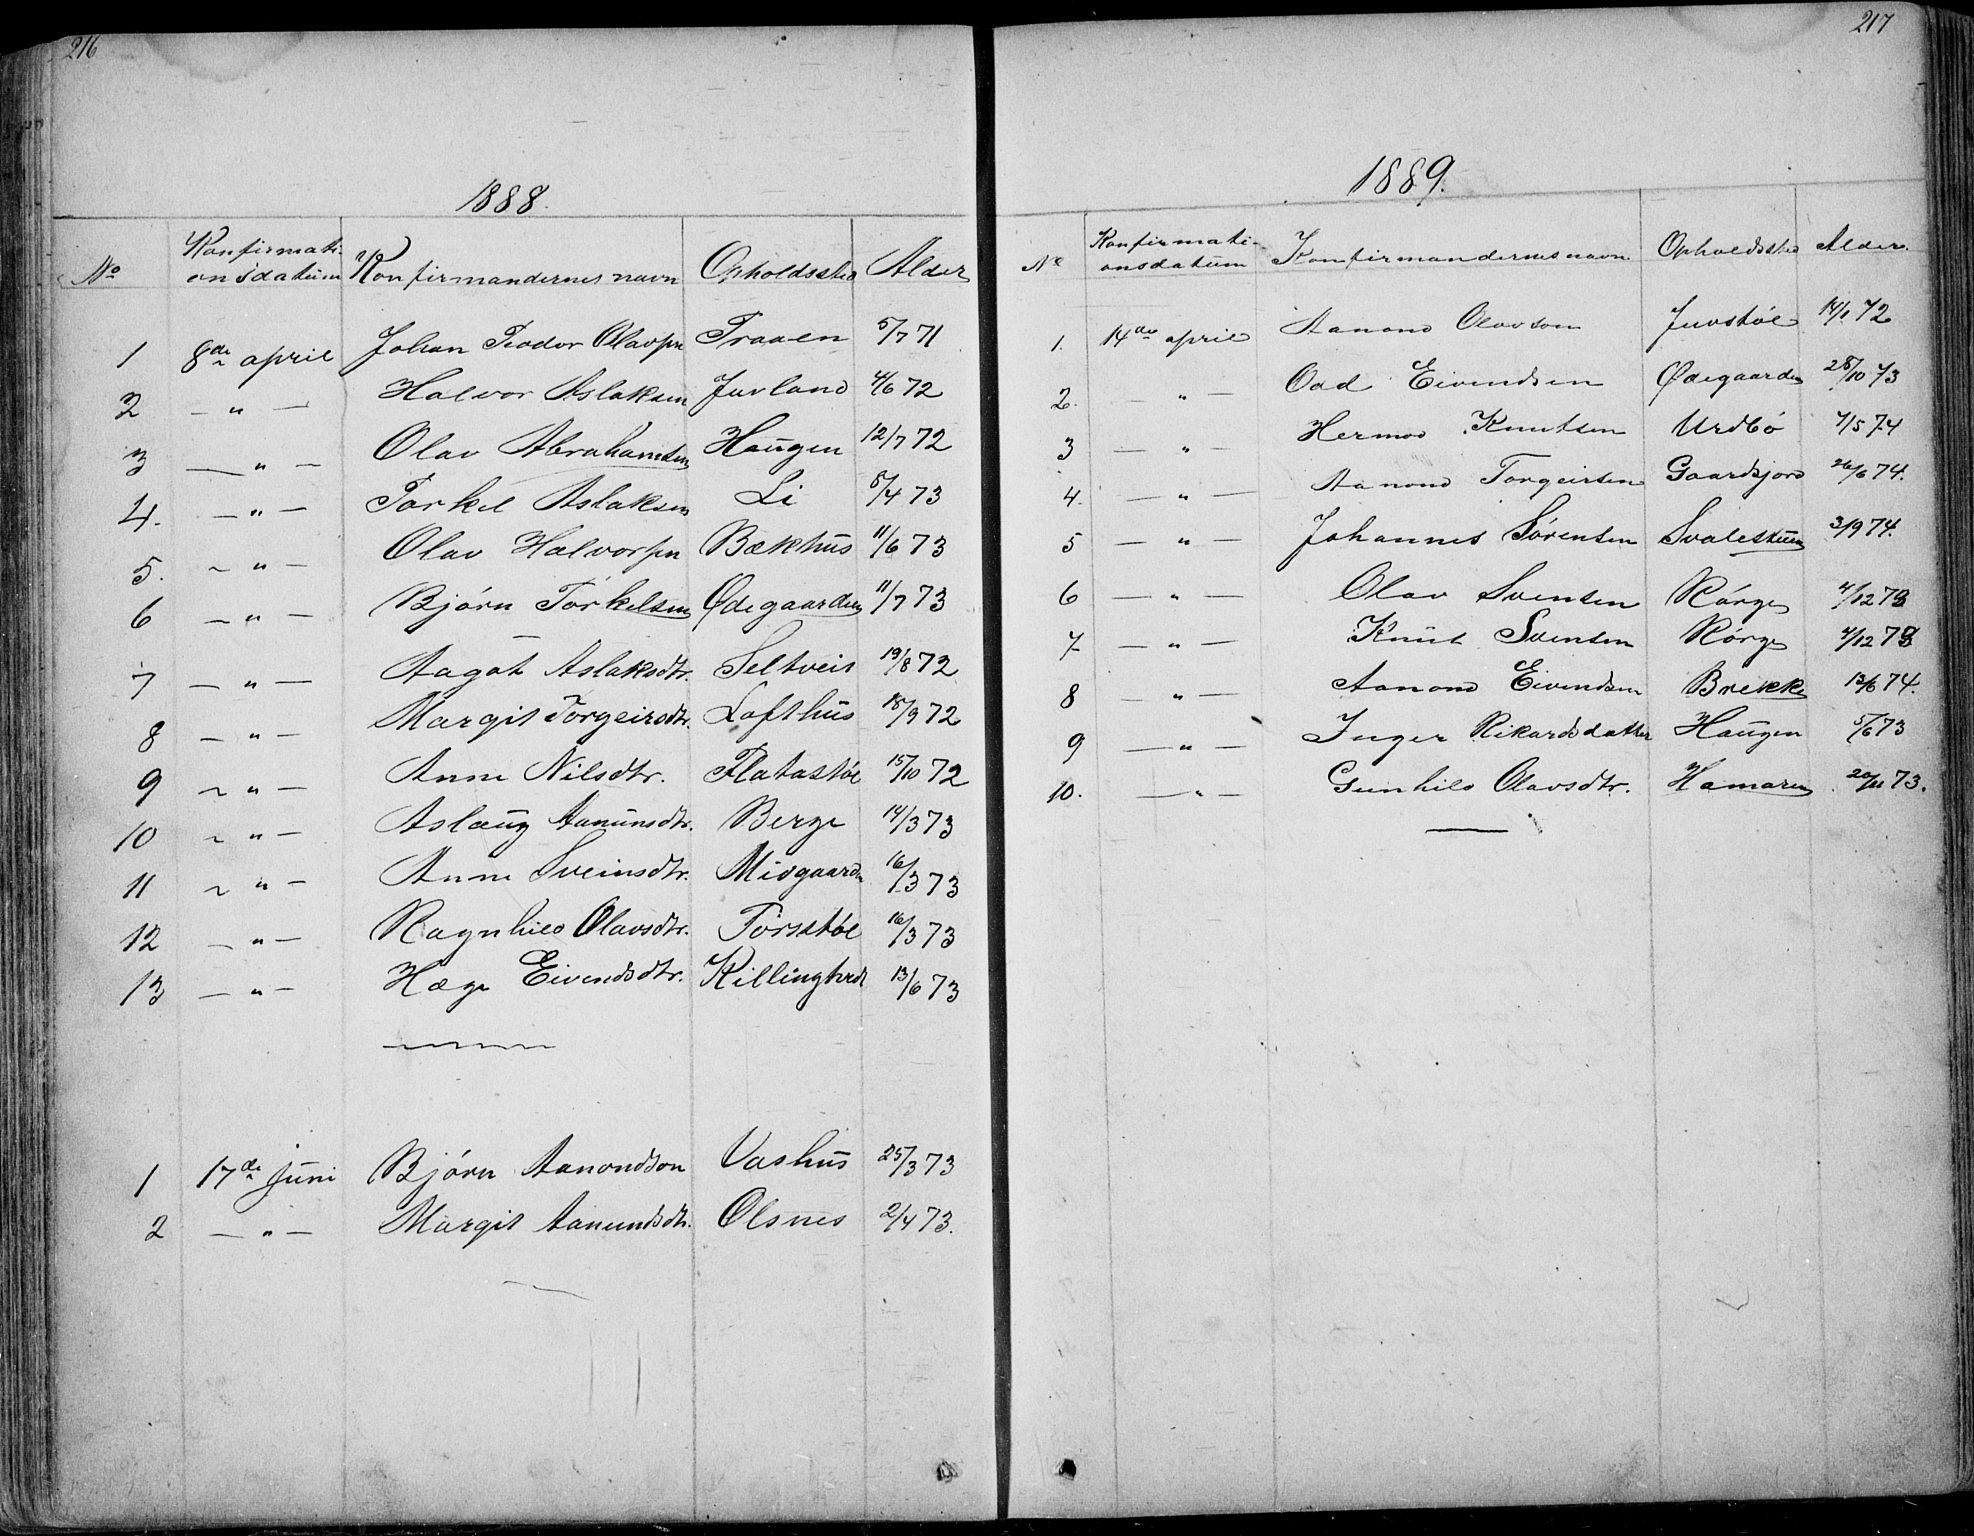 216
1888.
No Konfirmati-
onsdatum Konfirmandernes navn Opholdssted Alder
1 8de april Johan Teodor Olavsen Traaen 5/7 71
2 — " — Halvor Aslaksen Juvland 4/6 72
3 — " — Olav Abrahamsen Haugen 12/7 72
4. — " — Torkel Aslaksen Li 5/4 73
5. — " — Olav Halvorsen Bækhus 11/6 73
6 — " — Bjørn Torkelsen Ødegaarden 11/7 73
7 — " — Aagot Aslaksdtr. Seltveit 19/8 72
8 — " — Margit Torgeirsdtr. Lofthus 18/9 72
9 — " — Anne Nilsdtr. Flatastøl 15/10 72
10 — " — Aslaug Aanunsdtr. Berge 14/3 73
11 — " — Anne Sveinsdtr. Midgaarden 16/3 73
12 — " — Ragnhild Olavsdtr. Torsstøl 16/3 73
13 — " — Hæge Eivendsdtr. Killingtvedt 13/6 73
1 17de Juni Bjørn Aanondson Vashus 25/3 73
2 — " — Margit Aanundsdtr. Olsnes 2/4 73.
217
1889.
No Konfirmati-
onsdatum Konfirmandernes navn Opholdssted Alder.
1. 14de april Aanond Olavson Juvstøl 72
2. — " — Odd Eivendsen Ødegaarden 28/10 73
3 — " — Hermod Knutsen Urdbø 7/5 74
4. — " — Aanond Torgeirsen Gaardsjord 26/6 74.
5 — " — Johannes Sørensen Svalestuen 3/9 74.
6 — " — Olav Svensen Rørge 4/12 73
7 — " — Knut Svensen Rørge 4/12 73
8 — " — Aanond Eivendsen Brekke 13/6 74.
9 — " — Inger Rikardsdatter Haugen 5/6 73
10. — " — Gunhild Olavsdtr. Hamaren 20/11 73.